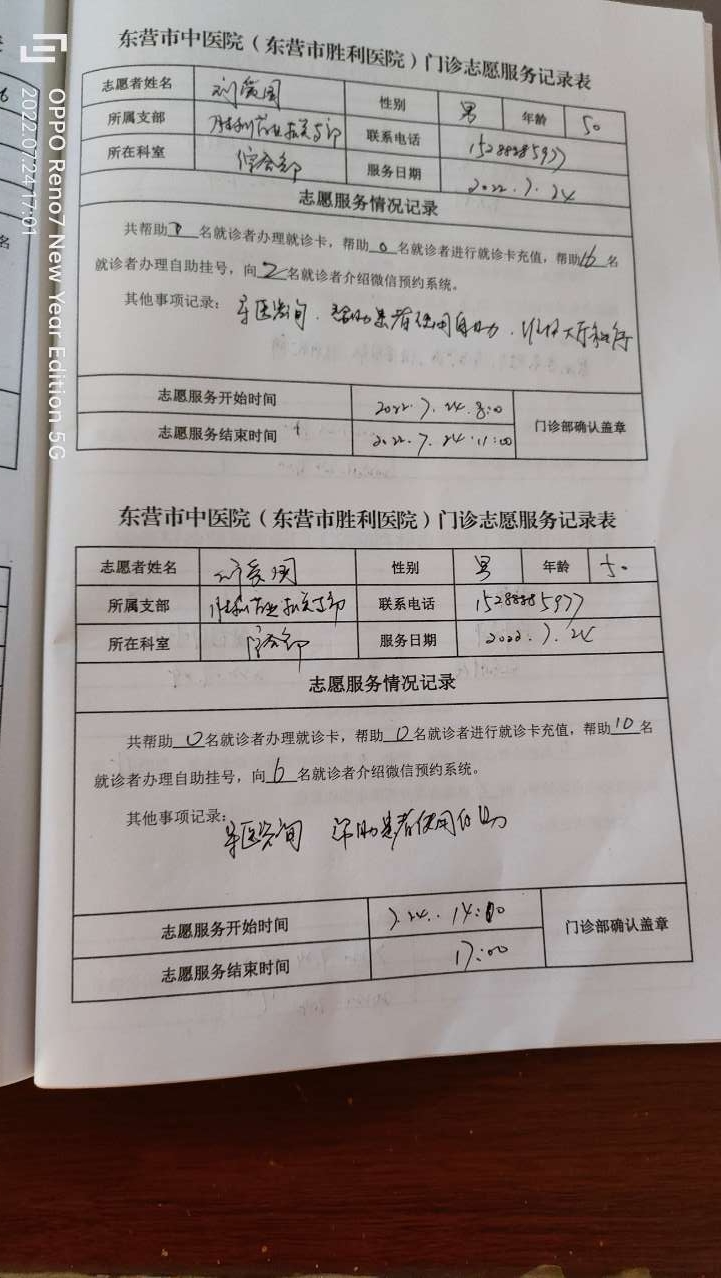 东营市中医院（东营市胜利医院）门诊志愿服务记录表
志愿者姓名 刘爱国 性别 男 年龄 50
所属支部 联系电话 15288885977
所在科室 综合部 服务日期 2022.7.24
志愿服务情况记录
共帮助 名就诊者办理就诊卡，帮助0名就诊者进行就诊卡充值，帮助16名
就诊者办理自助挂号，向2名就诊者介绍微信预约系统。
其他事项记录：导医咨询、帮助患者使用自助、
志愿服务开始时间 2022.7.24.8:00 门诊部确认盖章
志愿服务结束时间 2022.7.24.11:00
东营市中医院（东营市胜利医院）门诊志愿服务记录表
志愿者姓名 刘爱国 性别 男 年龄 50
所属支部 联系电话 15288885977
所在科室 综合部 服务日期 2022.7.24
志愿服务情况记录
共帮助0名就诊者办理就诊卡，帮助0名就诊者进行就诊卡充值，帮助10名
就诊者办理自助挂号，向6名就诊者介绍微信预约系统。
其他事项记录：导医咨询 帮助患者使用自助
志愿服务开始时间 7.24..14:00 门诊部确认盖章
志愿服务结束时间 17:00
OPPO Reno7 New Year Edition 5G
2022.07.24 17:01